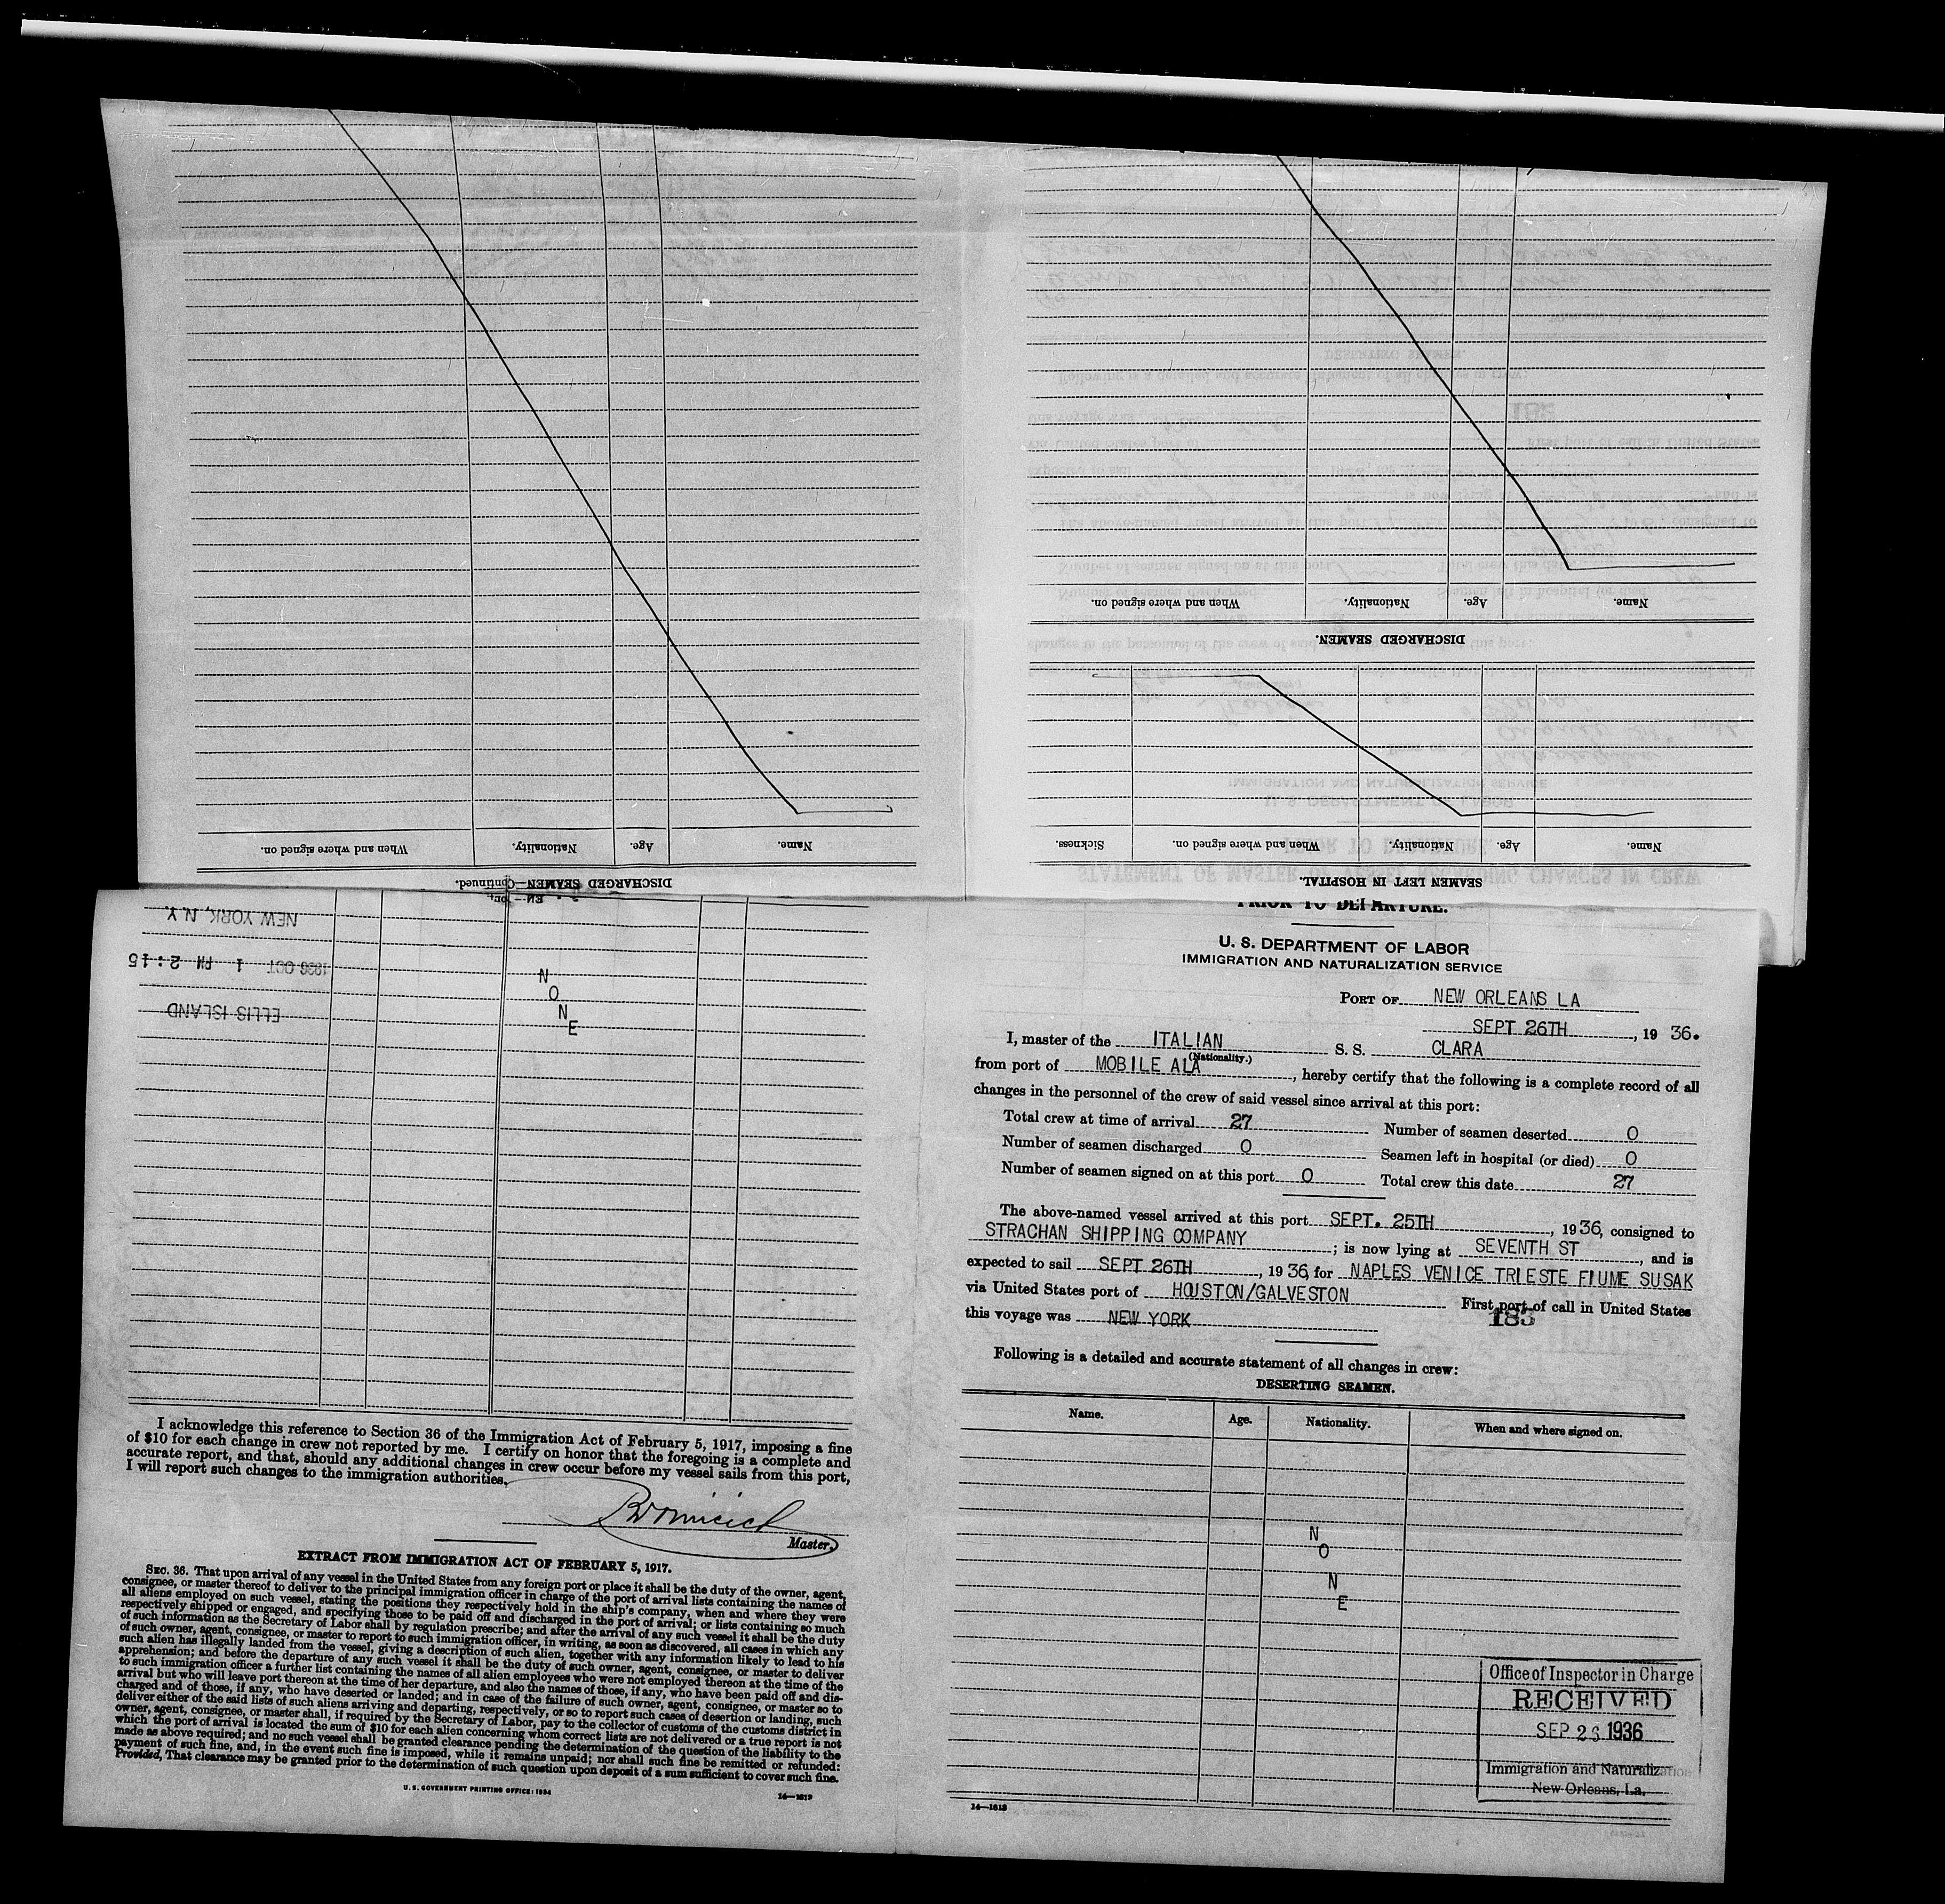 DISCHARGED SEAMEN—Continued.
Name. Age. Nationality. When and where signed on.
SEAMEN LEFT IN HOSPITAL.
Name. Age. Nationality. When and where signed on. Sickness.
DISCHARGED SEAMEN.
Name. Age. Nationality. When and where signed on.
ELLIS ISLAND
1936 OCT 1 PM 2:15
NEW YORK, N.Y.
N
O
N
E
I acknowledge this reference to Section 36 of the Immigration Act of February 5, 1917, imposing a fine
of $10 for each change in crew not reported by me. I certify on honor that the foregoing is a complete and
accurate report, and that, should any additional changes in crew occur before my vessel sails from this port,
I will report such changes to the immigration authorities.
Master.
EXTRACT FROM IMMIGRATION ACT OF FEBRUARY 5, 1917.
SEC. 36. That upon arrival of any vessel in the United States from any foreign port or place it shall be the duty of the owner, agent,
consignee, or master thereof to deliver to the principal immigration officer in charge of the port of arrival lists containing the names of
all aliens employed on such vessel, stating the positions they respectively hold in the ship's company, when and where they were
respectively shipped or engaged, and specifying those to be paid off and discharged in the port of arrival; or lists containing so much
of such information as the Secretary of Labor shall by regulation prescribe; and after the arrival of any such vessel it shall be the duty
of such owner, agent, consignee, or master to report to such immigration officer, in writing, as soon as discovered, all cases in which any
such alien has illegally landed from the vessel, giving a description of such alien, together with any information likely to lead to his
apprehension; and before the departure of any such vessel it shall be the duty of such owner, agent, consignee, or master to deliver
to such immigration officer a further list containing the names of all alien employees who were not employed thereon at the time of the
arrival but who will leave port thereon at the time of her departure, and also the names of those, if any, who have been paid off and dis-
charged and of those, if any, who have deserted or landed; and in case of the failure of such owner, agent, consignee, or master so to
deliver either of the said lists of such aliens arriving and departing, respectively, or so to report such cases of desertion or landing, such
owner, agent, consignee, or master shall, if required by the Secretary of Labor, pay to the collector of customs of the customs district in
which the port of arrival is located the sum of $10 for each alien concerning whom correct lists are not delivered or a true report is not
made as above required; and no such vessel shall be granted clearance pending the determination of the question of the liability to the
payment of such fine, and, in the event such fine is imposed, while it remains unpaid; nor shall such fine be remitted or refunded:
Provided, That clearance may be granted prior to the determination of such question upon deposit of a sum sufficient to cover such fine.
U. S. GOVERNMENT PRINTING OFFICE: 1934
14—1613
PRIOR TO DEPARTURE.
U. S. DEPARTMENT OF LABOR
IMMIGRATION AND NATURALIZATION SERVICE
PORT OF NEW ORLEANS LA
SEPT 26TH, 19 36.
I, master of the ITALIAN S. S. CLARA
(Nationality.)
from port of MOBILE ALA, hereby certify that the following is a complete record of all
changes in the personnel of the crew of said vessel since arrival at this port:
Total crew at time of arrival 27 Number of seamen deserted 0
Number of seamen discharged 0 Seamen left in hospital (or died) 0
Number of seamen signed on at this port 0 Total crew this date 27
The above-named vessel arrived at this port SEPT. 25TH, 1936, consigned to
STRACHAN SHIPPING COMPANY; is now lying at SEVENTH ST, and is
expected to sail SEPT 26TH, 1936, for NAPLES VENICE TRIESTE FIUME SUSAK
via United States port of HOUSTON/GALVESTON First port of call in United States
this voyage was NEW YORK 183
Following is a detailed and accurate statement of all changes in crew:
DESERTING SEAMEN.
Name. Age. Nationality. When and where signed on.
N
O
N
E
Office of Inspector in Charge
RECEIVED
SEP 26 1936
Immigration and Naturalization
New Orleans, La.
14—1613